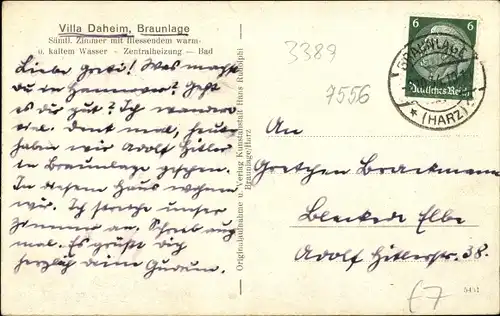 Villa Daheim, Braunlage
Sämtl. Zimmer mit fliessendem warm-
u. kaltem Wasser - Zentralheizung - Bad
Liebe Greti! Was machst
du in Hannover? Geht
es dir gut? Ich wandere
viel. Denk mal, heute
haben wir Adolf Hitler
in Braunlage gesehen.
In diesem Haus wohnen
wir. Ich streiche unser
Zimmer an. Schreib auch
mal. Es grüßt dich
herzlich deine Gudrun.
Originalaufnahme u. Verlag Kunstanstalt Hans Rudolphi
Braunlage/Harz
3389
7556
6 6
Deutsches Reich
BRAUNLAGE
(HARZ)
An
Gretchen Brackmann
Bleckede Elbe
Adolf Hitlerstr. 38.
£7